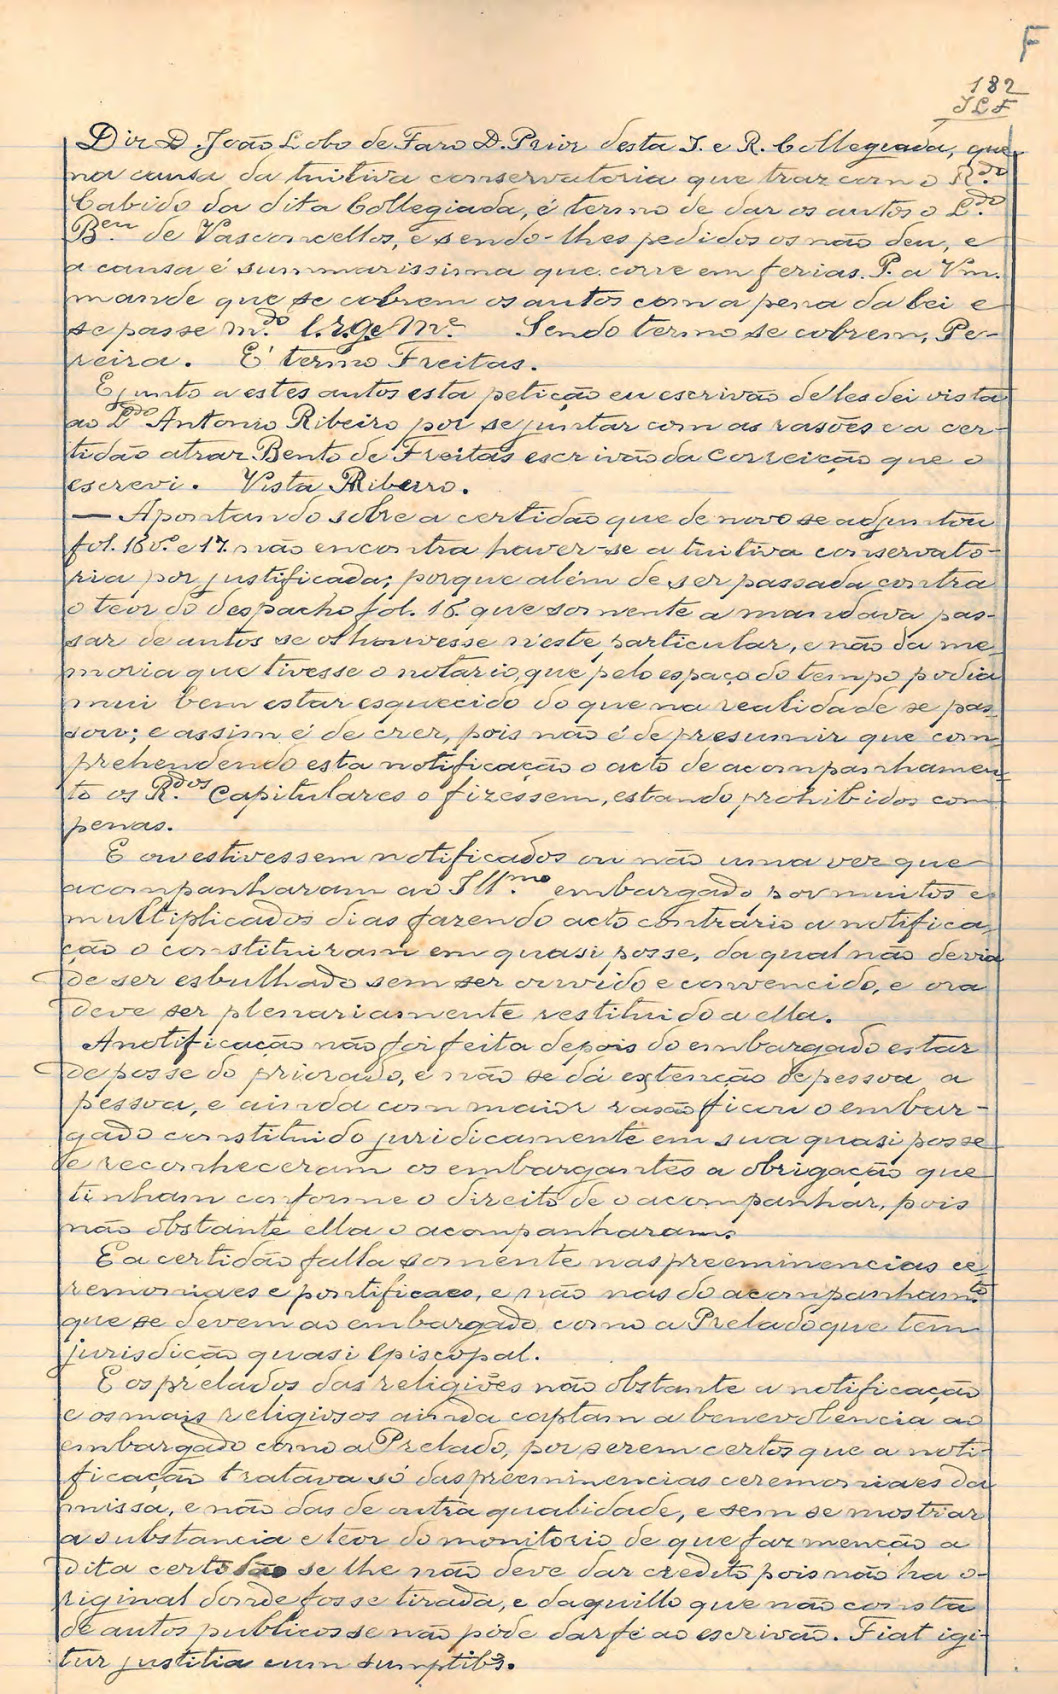 F
182
JLF
Diz D. João Lobo de Faro D. Prior desta I. e R. Collegiada, que
na causa da tuitiva conservatoria que traz com o R.do
Cabido da dita Collegiada, é termo de dar os autos o L.do
B.eu de Vasconcellos, e sendo-lhes pedidos os não deu, e
a causa é summarissima que corre em ferias. P. a Vm.
mande que se cobrem os autos com a pena da lei e
se passe m.do E.R.Ge M.e Sendo termo se cobrem, Pe-
reira. É termo Freitas.
E junto a estes autos esta petição eu escrivão déles dei vista
ao L.do Antonio Ribeiro por se juntar com as rasões e a cer-
tidão atraz Bento de Freitas escrivão da correição que o
escrevi. Vista Ribeiro.
— Apontando sobre a certidão que de novo se adjuntou
fol. 16 v.º e 17. não encontra haver-se a tuitiva conservato-
ria por justificada; porque além de ser passada contra
o teor do despacho fol. 16. que somente a mandava pas-
sar de autos se os houvesse n'este particular, e não da me-
moria que tivesse o notário, que pelo espaço do tempo podia
mui bem estar esquecido do que na realidade se pas-
sou; e assim é de crer, pois não é de presumir que com-
prehendendo esta notificação o acto de acompanhamen-
to os R.dos Capitulares o fizessem, estando prohibidos com
penas.
E ou estivessem notificados ou não uma vez que
acompanharam ao Ill.mo embargado por muitos e
multiplicados dias fazendo acto contrário a notifica-
ção o constituiram em quasi posse, da qual não devia
de ser esbulhado sem ser ouvido e convencido, e ora
deve ser plenariamente restituido a ella.
A notificação não foi feita depois do embargado estar
de posse do priorado, e não se dá extenção de pessoa a
pessoa, e ainda com maior rasão ficou o embar-
gado constituido juridicamente em sua quasi posse
e reconheceram os embargantes a obrigação que
tinham conforme o direito de o acompanhar, pois
não obstante ella o acompanharam.
E a certidão falla somente nas preeminencias ce-
remoniaes e pontificaes, e não nas do acompanham.to
que se devem ao embargado como a Prelado que tem
jurisdição quasi Episcopal.
E os prelados das religiões não obstante a notificação
e os mais religiosos ainda captam a benevolencia ao
embargado como a Prelado, por serem certos que a noti-
ficação tratava só das preeminencias ceremoniaes da
missa, e não das de outra qualidade, e sem se mostrar
a substancia e teor do monitorio de que faz menção a
dita certidão se lhe não deve dar credito pois não ha o-
riginal donde fosse tirada, e daquillo que não consta
de autos publicos se não póde dar fé ao escrivão. Fiat igi-
tur justitia cum sumptibs.